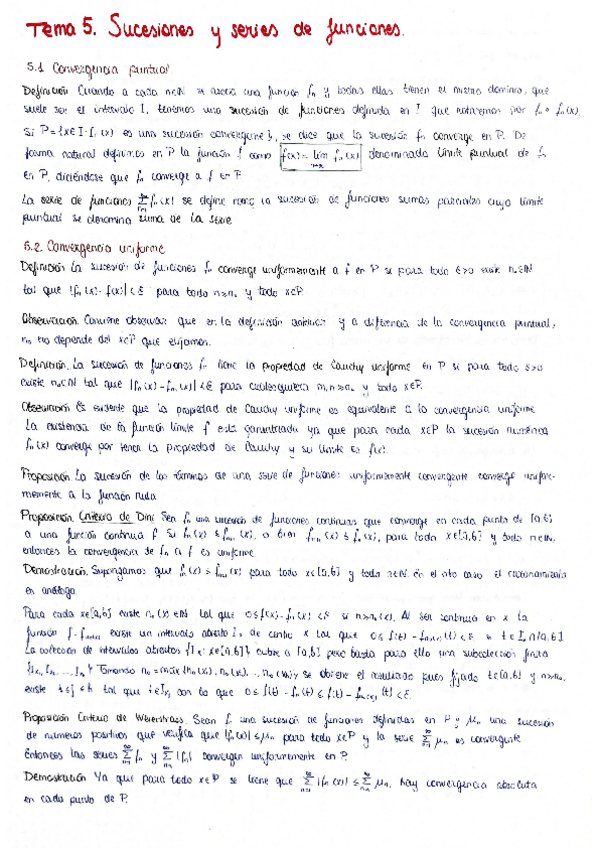 Tema 5. Sucesiones y series de funciones.
5.1 Convergencia puntual
Definición Cuando a cada n∈ℕ se asocia una función fₙ y todas ellas tienen el mismo dominio, que
suele ser el intervalo I, tenemos una sucesión de funciones definida en I que notaremos por fₙ = fₙ(x).
Si P={x∈I: fₙ(x) es una sucesión convergente}, se dice que la sucesión fₙ converge en P. De
forma natural definimos en P la función f como f(x) = lim fₙ(x) denominada límite puntual de fₙ
en P, diciéndose que fₙ converge a f en P
La serie de funciones ∑ fₙ(x) se define como la sucesión de funciones sumas parciales cuyo límite
puntual se denomina suma de la serie
5.2 Convergencia uniforme
Definición La sucesión de funciones fₙ converge uniformemente a f en P si para todo ε>0 existe n₀∈ℕ
tal que |fₙ(x)-f(x)|<ε para todo n≥n₀ y todo x∈P.
Observación. Conviene observar que en la definición anterior y a diferencia de la convergencia puntual,
n₀ no depende del x∈P que elijamos.
Definición. La sucesión de funciones fₙ tiene la propiedad de Cauchy uniforme en P si para todo ε>0
existe n₀∈ℕ tal que |fₙ(x)-fₘ(x)|<ε para cualesquiera m,n≥n₀ y todo x∈P.
Observación Es evidente que la propiedad de Cauchy uniforme es equivalente a la convergencia uniforme
La existencia de la función límite f está garantizada ya que para cada x∈P la sucesión numérica
fₙ(x) converge por tener la propiedad de Cauchy y su límite es f(x).
Proposición La sucesión de los términos de una serie de funciones uniformemente convergente converge unifor-
memente a la función nula
Proposición Criterio de Dini Sea fₙ una sucesión de funciones continuas que converge en cada punto de [a,b]
a una función continua f Si fₙ(x) ≤ fₙ₊₁(x), o bien fₙ₊₁(x) ≤ fₙ(x), para todo x∈[a,b] y todo n∈ℕ,
entonces la convergencia de fₙ a f es uniforme.
Demostración. Supongamos que fₙ(x) ≤ fₙ₊₁(x) para todo x∈[a,b] y todo n∈ℕ. En el otro caso el razonamiento
es análogo.
Para cada x∈[a,b] existe n₀(x)∈ℕ tal que 0≤f(x)-fₙ(x)<ε si n≥n₀(x). Al ser continua en x la
función existe un intervalo abierto Iₓ de centro x tal que
La colección de intervalos abiertos {Iₓ: x∈[a,b]} cubre a [a,b] pero basta para ello una subcolección finita
Tomando n₀ = máx se obtiene el resultado pues fijado t∈[a,b] y n≥n₀,
existe tal que con lo que
Proposición Criterio de Weierstrass. Sean fₙ una sucesión de funciones definidas en P y μₙ una sucesión
de números positivos que verifica que |fₙ(x)|≤μₙ para todo x∈P y la serie ∑ μₙ es convergente
Entonces las series ∑ fₙ y ∑ |fₙ| convergen uniformemente en P.
Demostración Ya que para todo x∈P se tiene que ∑ |fₙ(x)| ≤ ∑ μₙ, hay convergencia absoluta
en cada punto de P.